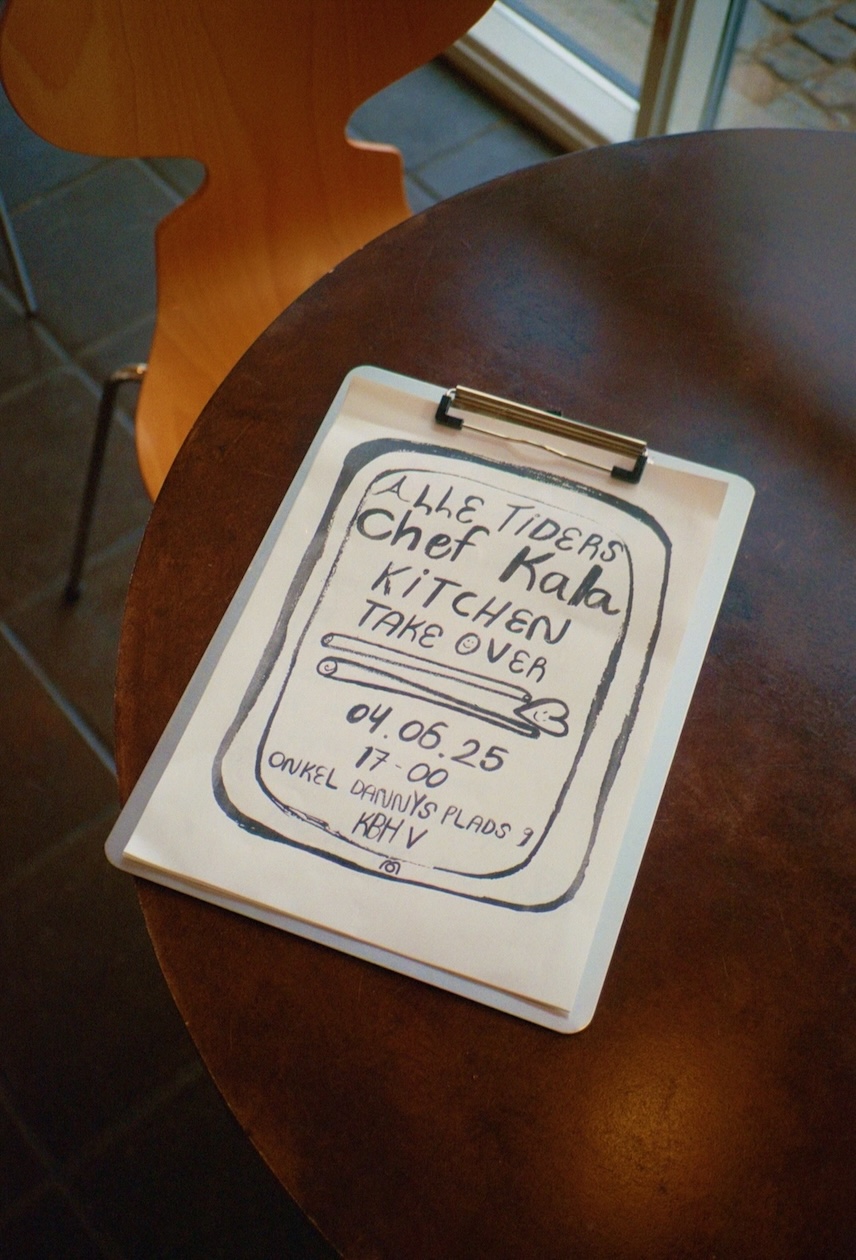 ALLE TIDERS
Chef Kala
KITCHEN
TAKE OVER
04.06.25
17-00
ONKEL DANNYS PLADS 9
KBH V